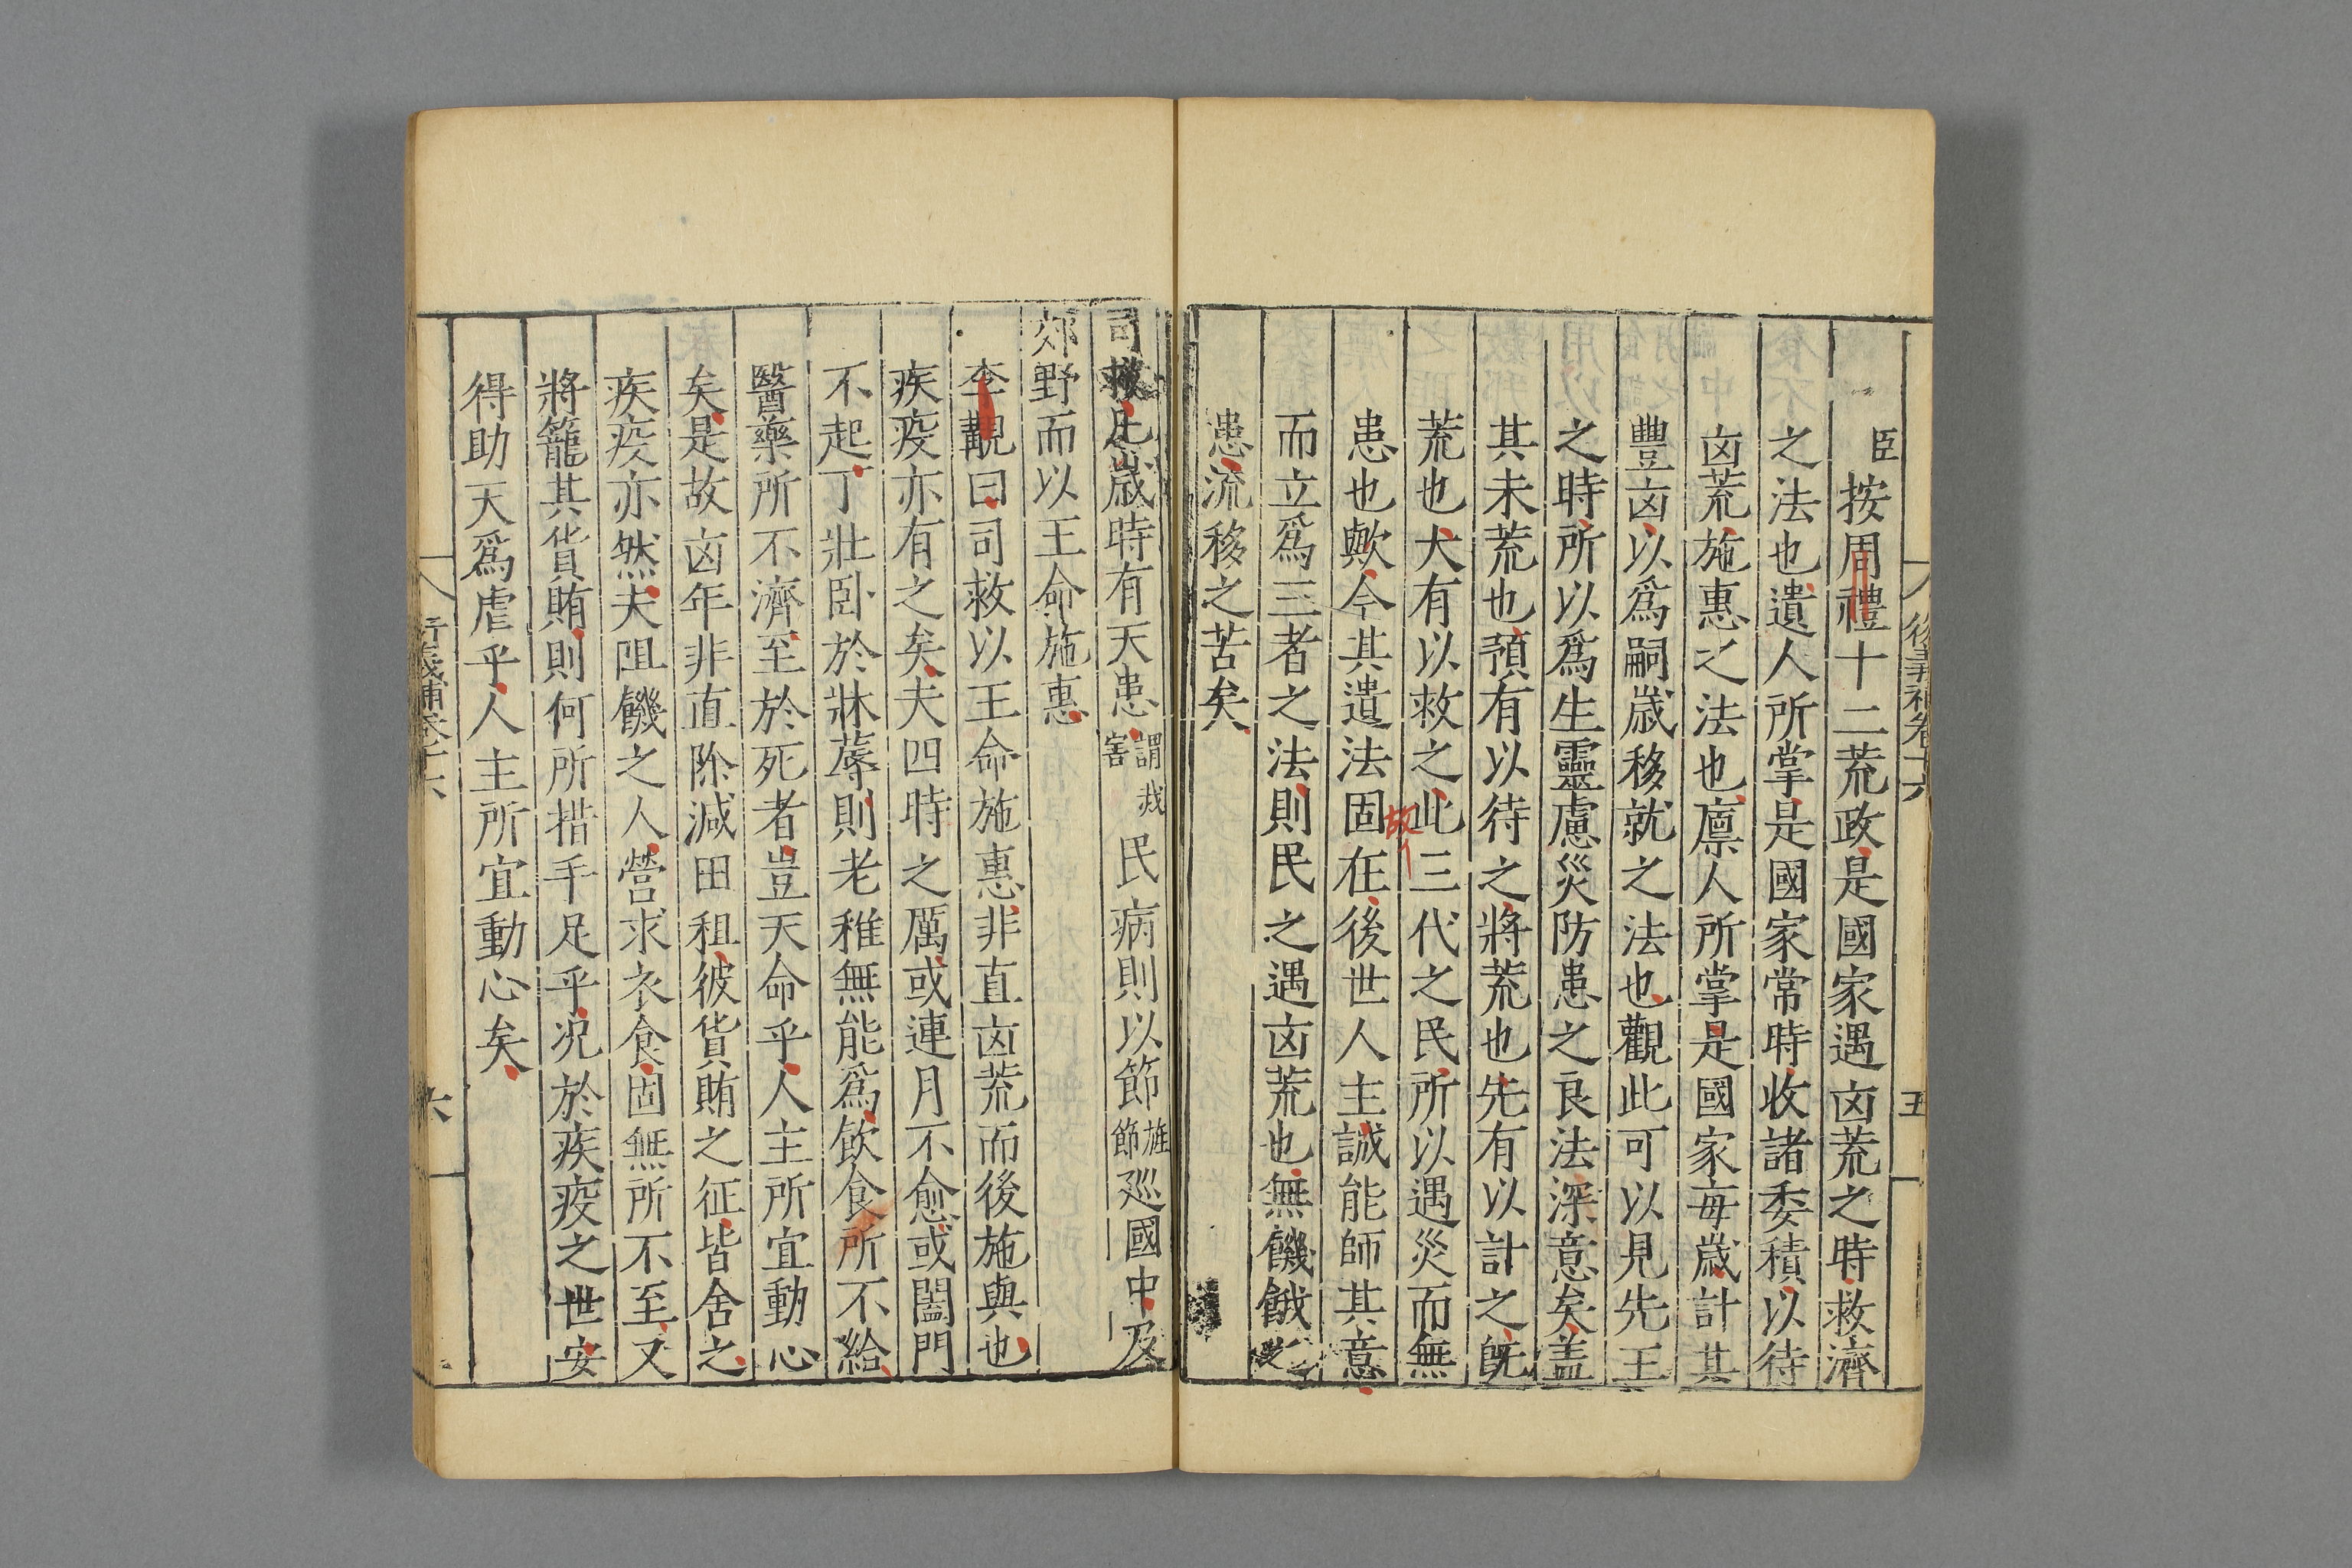 臣按周禮十二荒政是國家遇凶荒之時救濟
之法也遺人所掌是國家常時收諸委積以待
凶荒施惠之法也廩人所掌是國家每歲計其
豐凶以爲嗣歲移就之法也觀此可以見先王
之時所以爲生靈慮災防患之良法深意矣盖
其未荒也預有以待之將荒也先有以計之旣
荒也大有以救之此三代之民所以遇災而無
故
患也歟今其遺法固在後世人主誠能師其意
而立爲三者之法則民之遇凶荒也無饑餓之
患流移之苦矣
五
司救凡歲時有天患謂烖害民病則以節旌節巡國中及
郊野而以王命施惠
李覯曰司救以王命施惠非直凶荒而後施與也
疾疫亦有之矣夫四時之厲或連月不愈或闔門
不起丁壯臥於牀蓐則老稚無能爲飲食所不給
醫藥所不濟至於死者豈天命乎人主所宜動心
矣是故凶年非直除減田租彼貨賄之征皆舍之
疾疫亦然夫阻饑之人營求衣食固無所不至又
將籠其貨賄則何所措手足乎况於疾疫之世安
得助天爲虐乎人主所宜動心矣
六